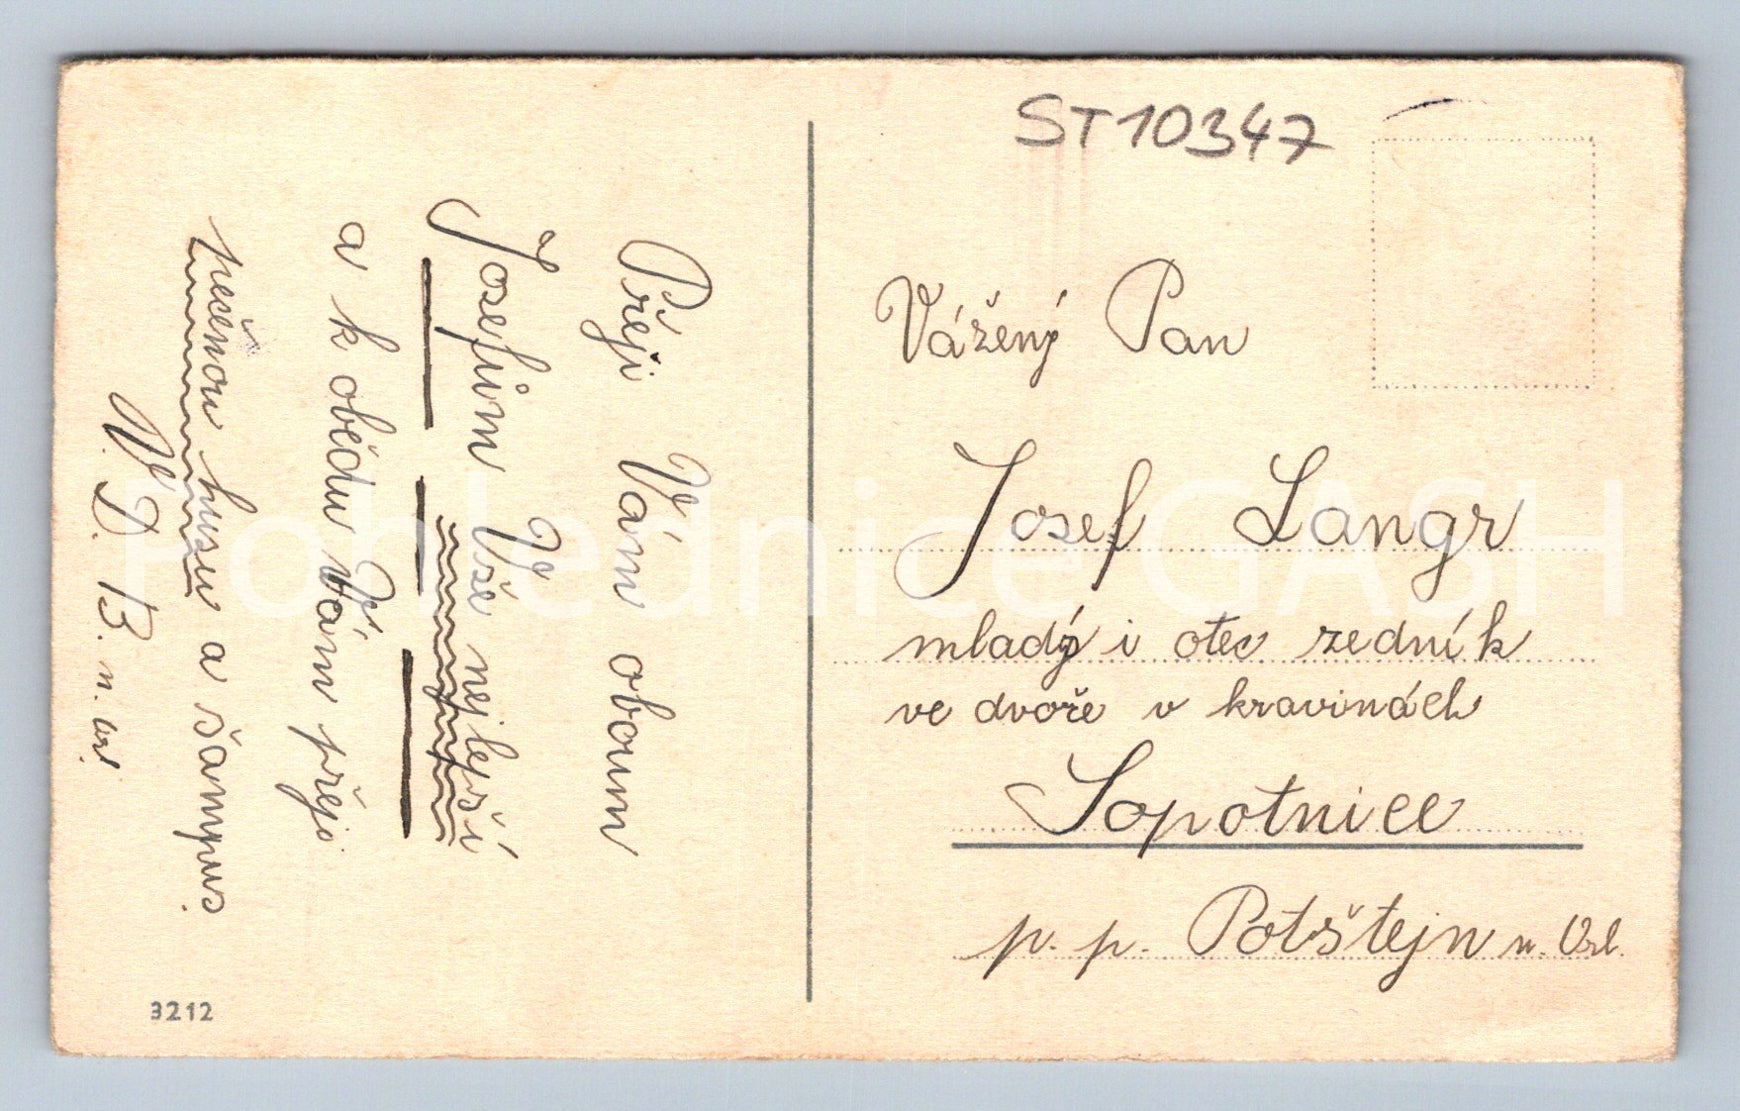 ST10347
Vážený Pan
Josef Langr
mladý i otec zedník
ve dvoře v kravinách
Sopotnice
p. p. Potštejn n. Orl.
Přeji Vám oboum
Josefům Vše nejlepší
a k obědu Vám přeji
pečenou husu a šampus.
V. D. B. n. Orl.
3212
Pohlednice GASH